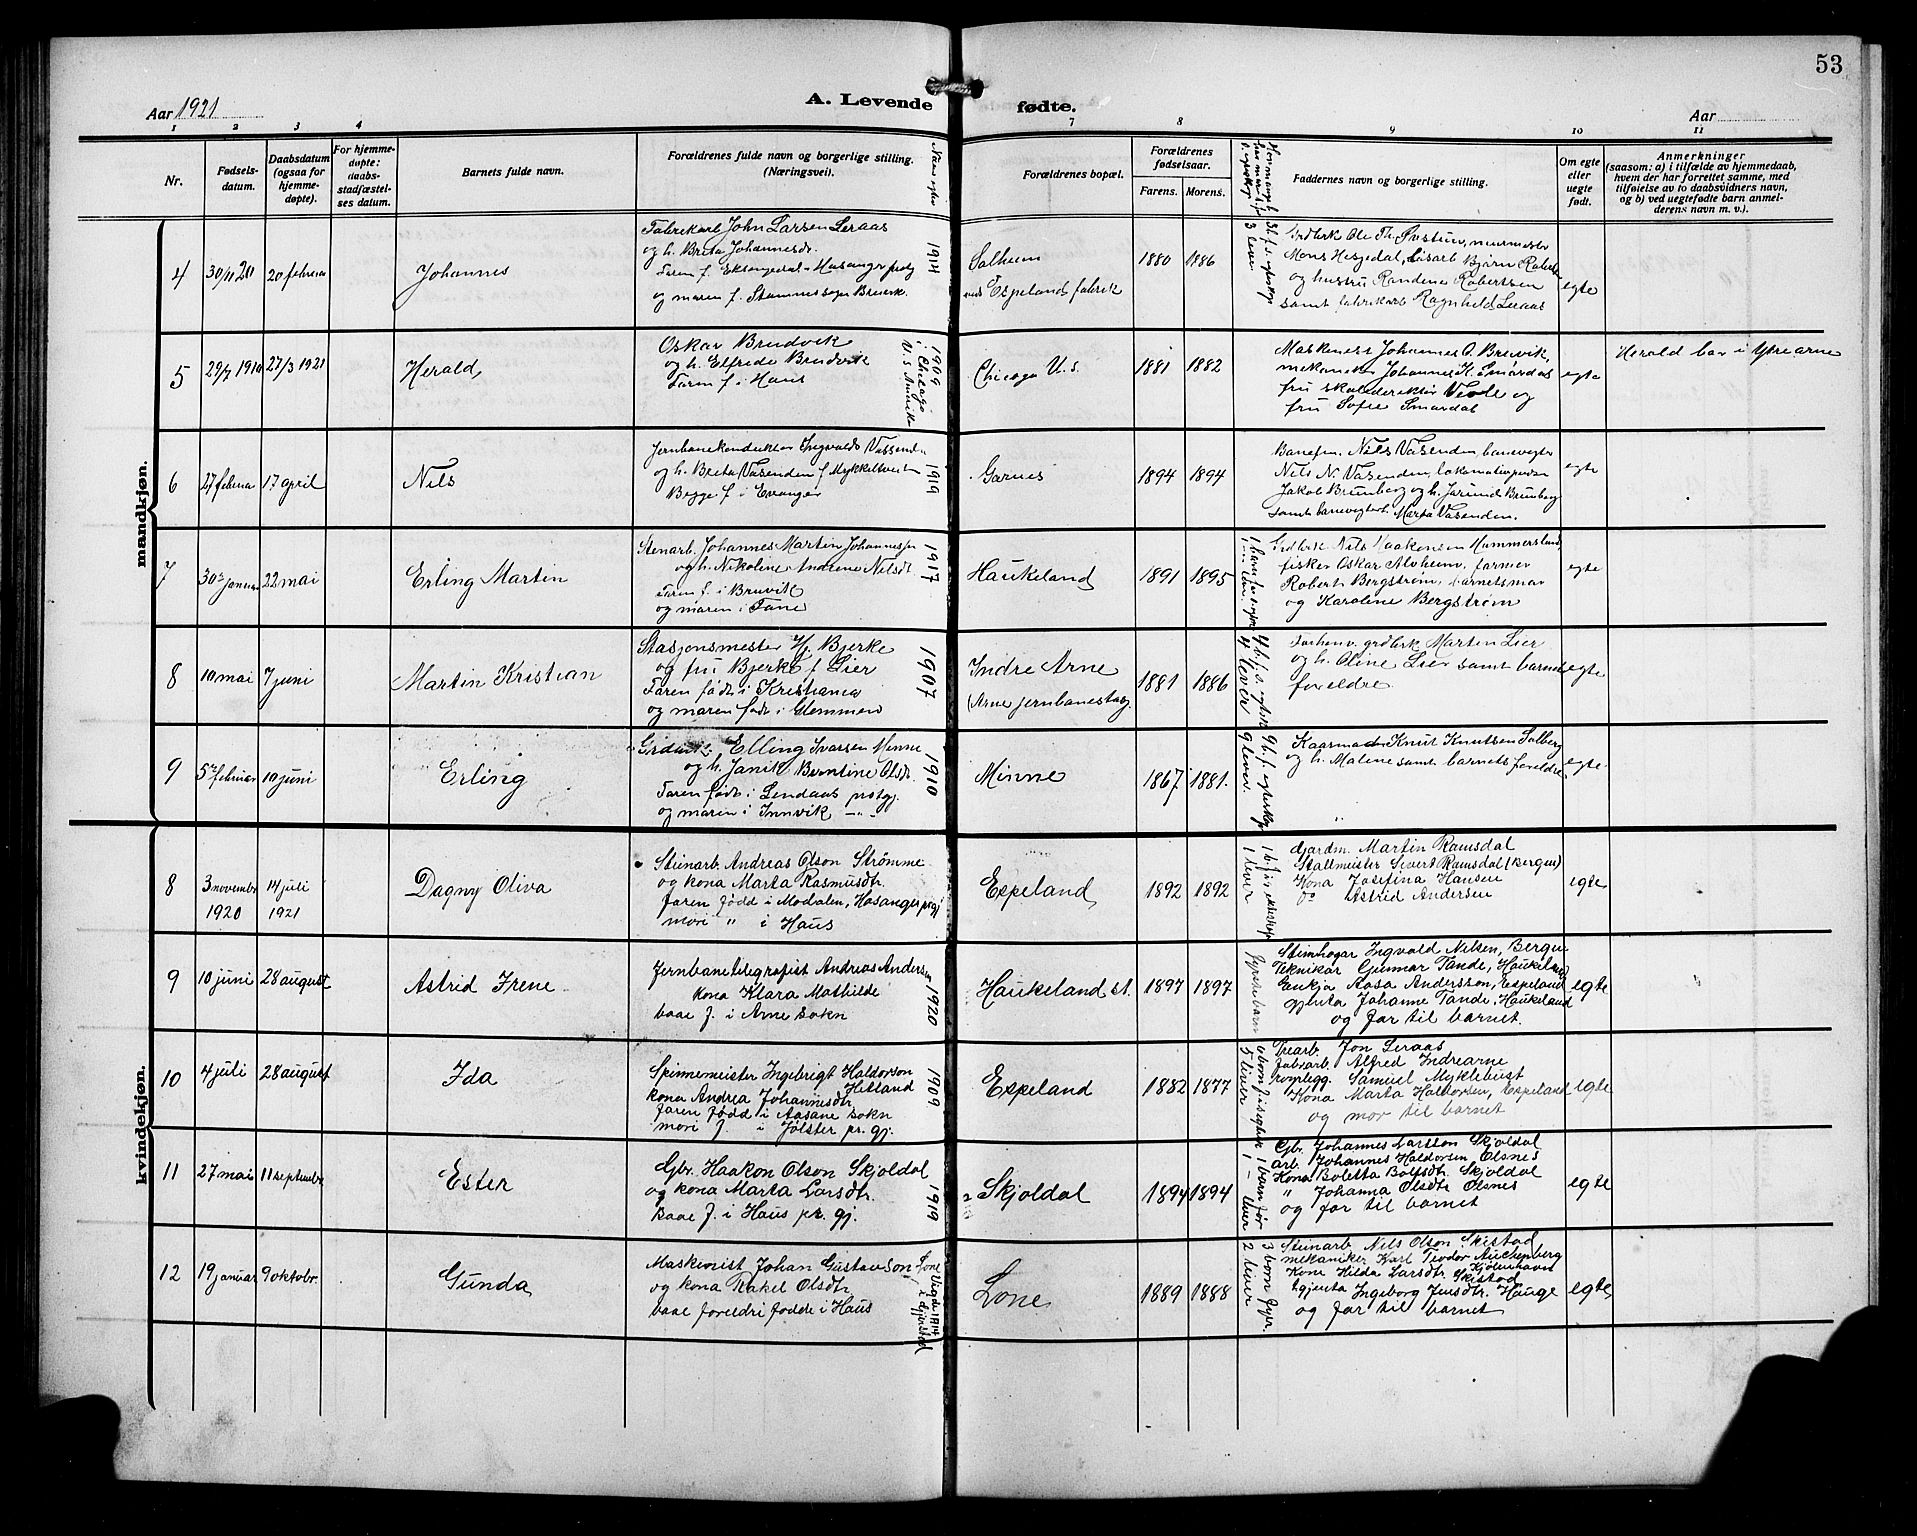 53
Aar 1921
A. Levende fødte.
Aar
1 2 3 4 7 8 9 10 11
Nr.
Fødsels-
datum.
Daabsdatum
(ogsaa for
hjemme-
døpte).
For hjemme-
døpte:
daabs-
stadfæstel-
ses datum.
Barnets fulde navn.
Forældrenes fulde navn og borgerlige stilling.
(Næringsvei).
Forældrenes bopæl.
Forældrenes
fødselsaar.
Farens. Morens.
Faddernes navn og borgerlige stilling.
Om egte
eller
uegte
født.
Anmerkninger
(saasom: a) i tilfælde av hjemmedaab,
hvem der har forrettet samme, med
tilføielse av to daabsvidners navn,
og b) ved uegtefødte barn anmel-
derens navn m. v.).
mandkjøn.
4 30/11 20 20 februa Johannes
Fabrikarb John Larsen Leraas
og h. Brita Johannesdr.
Faren f. Eksingedal - Hosanger
og moren f. Stamnes sogn Bruvik.
1914
Solheim
ved Espeland fabrik
1880 1886
samt fabrikarb Ragnhild Leraas
egte
5 29/7 1910 27/3 1921 Herald
Oskar Brudvik
og h. Elfrede Brudvik
Faren f. i Haus
1909
i Chicago
Chicago U.S.
1881 1882
Johannes O. Bruvik,
mekaniker Johannes H. Smørdal
fru skoledirektør og
fru Sofie Smørdal
egte
Herald bor i Ytre arne
6 27 februa 17 april Nils
Jernbanekonduktør Ingvald Vassend
og h. Brita Vasenden f. Mykkeltveit
Begge f. i Evanger
1919
Garnes
1894 1894
Banefm. Nils Vasenden, banevogter
Nils N. Vasenden,
Jakob Brunborg og h. Brunborg
samt Marta Vasenden.
egte
7 30te januar 22 mai Erling Martin
Stenarb. Johannes Martin Johannessen
og h. Nikoline Andrene Nilsdt
Faren f. i Bruvik
og moren i Fane
1917
Haukeland
1891 1895
Grdbrk Nils Haakonsen Hummersland,
fisker Oskar farmer
Robert Bergstrøm, barnets mor
og Karoline Bergstrøm
egte
8 10 mai 7 juni Martin Kristian
Stasjonsmester Bjerke
og fru Bjerke f. Lier
Faren født i Kristiania
og moren født i Glemmen
1907
Indre Arne
(Arne jernbanestasj.
1881 1886
4 lever
Forhenv. grdbrk Martin Lier
og h. Oline Lier samt barnets
foreldre.
egte
9 5te februar 10 juni Erling
Grdbrk. Elling Ivarsen Minne
og h. Janik Berntine Olsdt.
Faren født i Lindaas prstgj.
og moren i Innvik —"—
1910
Minne
1867. 1881.
9 lever.
Knut Knutsen Solberg
og h. Malene samt barnets foreldre
egte
kvindekjøn.
8 3 november 14 juli Dagny Oliva
1920 1921
Steinarb Andreas Olson Strømme
og kona Marta Rasmusdtr.
faren fødd i Modalen, Hosanger prgj
mori " i Haus
Espeland
1892 1892
1 lever
Gardm. Martin Ramsdal
Stallmeister Sivert Ramsdal (Bergen)
Kona Josefina Hansen
Do Astrid Andersen
egte
9 10 juni 28 august Astrid Irene
Jernbanetelegrafist Andreas Andersen
kona Klara Mathilde
baae f. i Arne sokn
1920
Haukeland st.
1897 1897
fyrste barn
Steinhogar Ingvald Nilsen, Bergen
Teknikar Gunnar Tande, Haukeland
Enkja Aasa Andersson, Espeland
gjenta Johanne Tande, Haukeland
og far til barnet.
egte
10 4 juli 28 august Ida
Spinnemeister Ingebrigt Haldorson
kona Andrea Johannesdtr Helland
faren fødd i Aasane sokn
mori f. i Jølster pr. gj.
1909
Espeland
1882 1877
Trearb. Jon Leraas
fabrarb. Alfred Indrearne
Samuel Myklebust
Kona Marta Haldorsen, Espeland
og mor til barnet
egte
11 27 mai 11 septembr Ester
Gbr. Haakon Olson Skjoldal
og kona Marta Larsdtr.
baae f. i Haus pr. gj.
1919
Skjoldal
1894 1894
1 barn før
Gbr. Johannes Larsson Skjoldal
arb. Johannes Haldorsen Olsnes
Kona Boletta Skjoldal
" Johanna Olsdtr Olsnes
og far til barnet
egte
12 19 januar 9 oktobr. Gunda
Maskinist Johan Gustavson
og kona Rakel Olsdtr.
baae foreldri fødde i Haus
Lone
1889 1888
3 born fyrr.
2 lever
Steinarb Nils Olson Skistad
mekaniker Karl Teodor Kjøbenhavn
Kone Hilda Larsdtr. Skistad
gjenta Ingeborg Jensdtr. Hauge
og far til barnet
egte